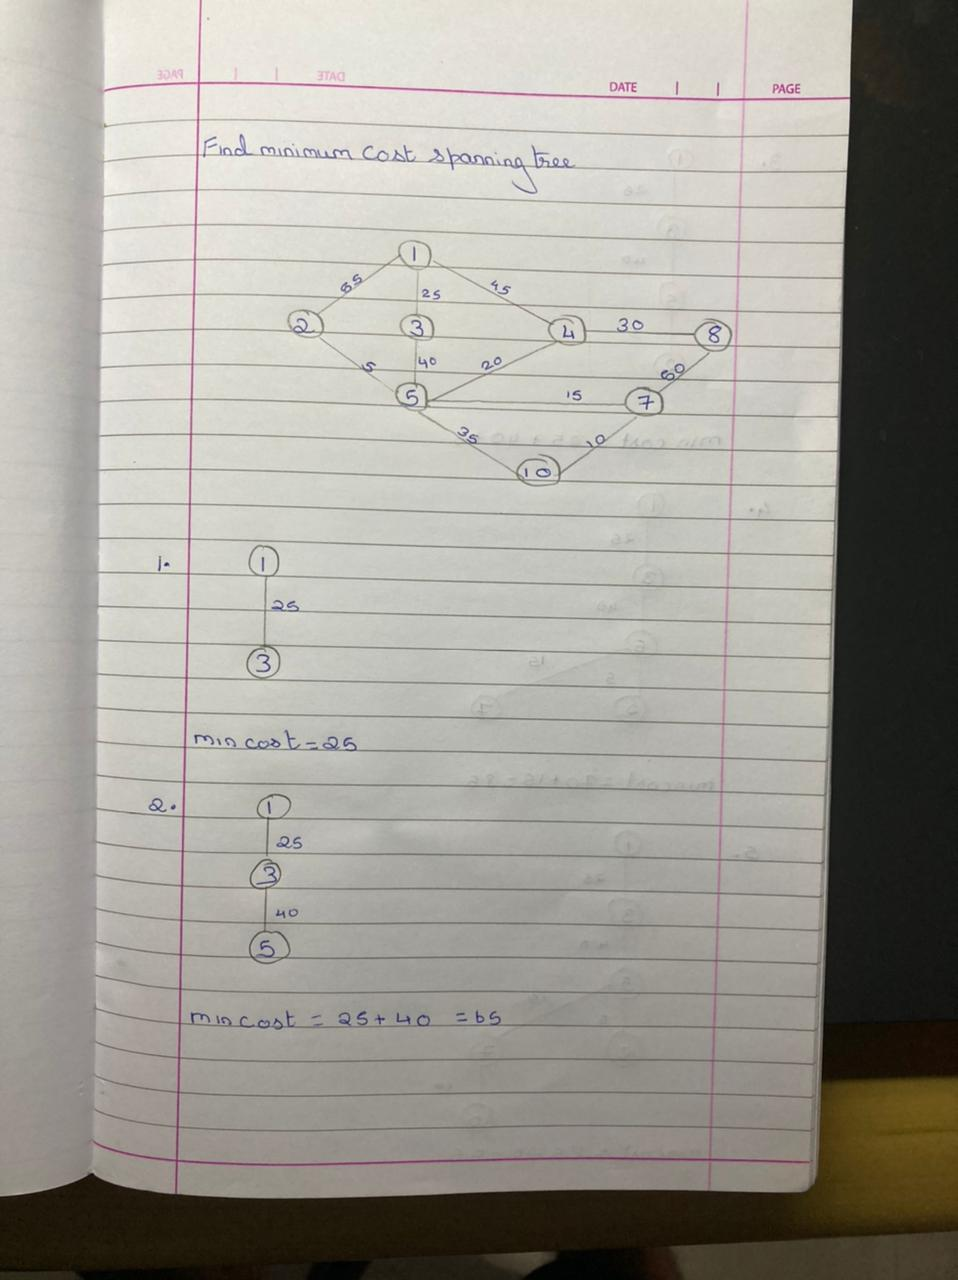 PAGE DATE
DATE PAGE
Find minimum cost spanning tree
1
55 25 45
2 3 4 30 8
5 40 20 60
5 15 7
35 10
10
1. 1
25
3
min cost = 25
2. 1
25
3
40
5
min cost = 25 + 40 = 65